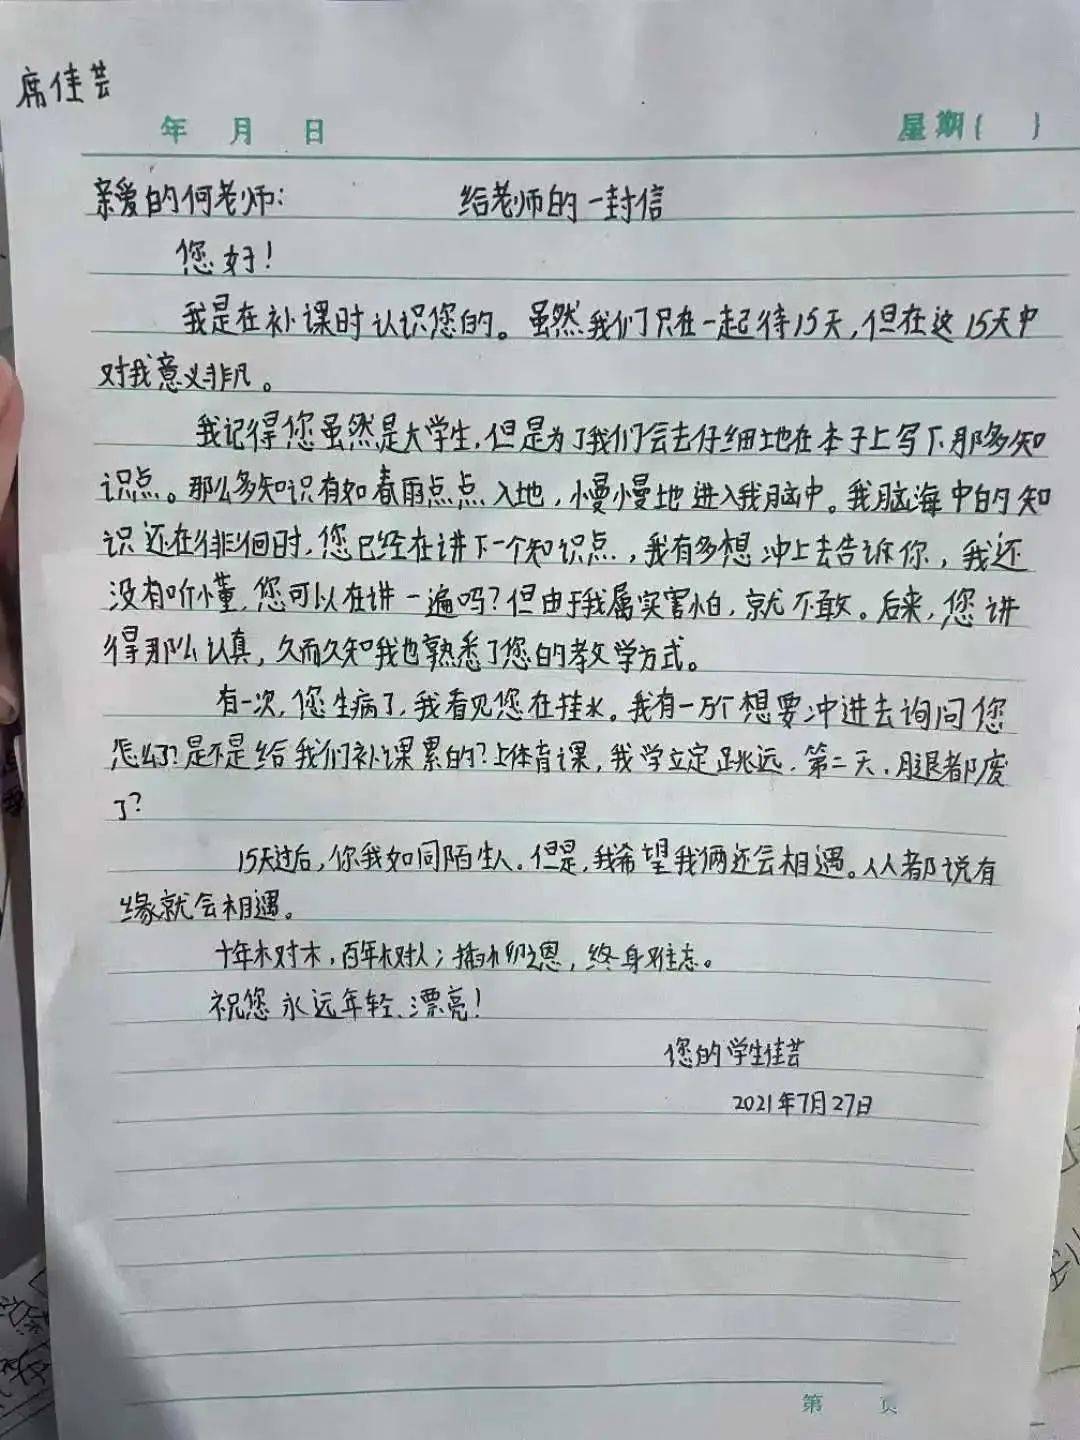 席佳芸
年 月 日 星期( )
亲爱的何老师: 给老师的一封信
您好!
我是在补课时认识您的。虽然我们只在一起待15天,但在这15天中
对我意义非凡。
我记得您虽然是大学生,但是为了我们会去仔细地在本子上写下那多知
识点。那么多知识有如春雨点点入地,慢慢地进入我脑中。我脑海中的知
识还在徘徊时,您已经在讲下一个知识点,我有多想冲上去告诉你,我还
没有听懂,您可以在讲一遍吗?但由于我属实害怕,就不敢。后来,您讲
得那么认真,久而久知我也熟悉了您的教学方式。
有一次,您生病了,我看见您在挂水。我有一万个想要冲进去询问您
怎么了?是不是给我们补课累的?上体育课,我学立定跳远.第二天,腿都废
了?
15天过后,你我如同陌生人.但是,我希望我俩还会相遇。人人都说有
缘就会相遇。
十年木对木,百年树人;滴水之恩,终身难忘。
祝您永远年轻、漂亮!
您的学生佳芸
2021年7月27日
第 页